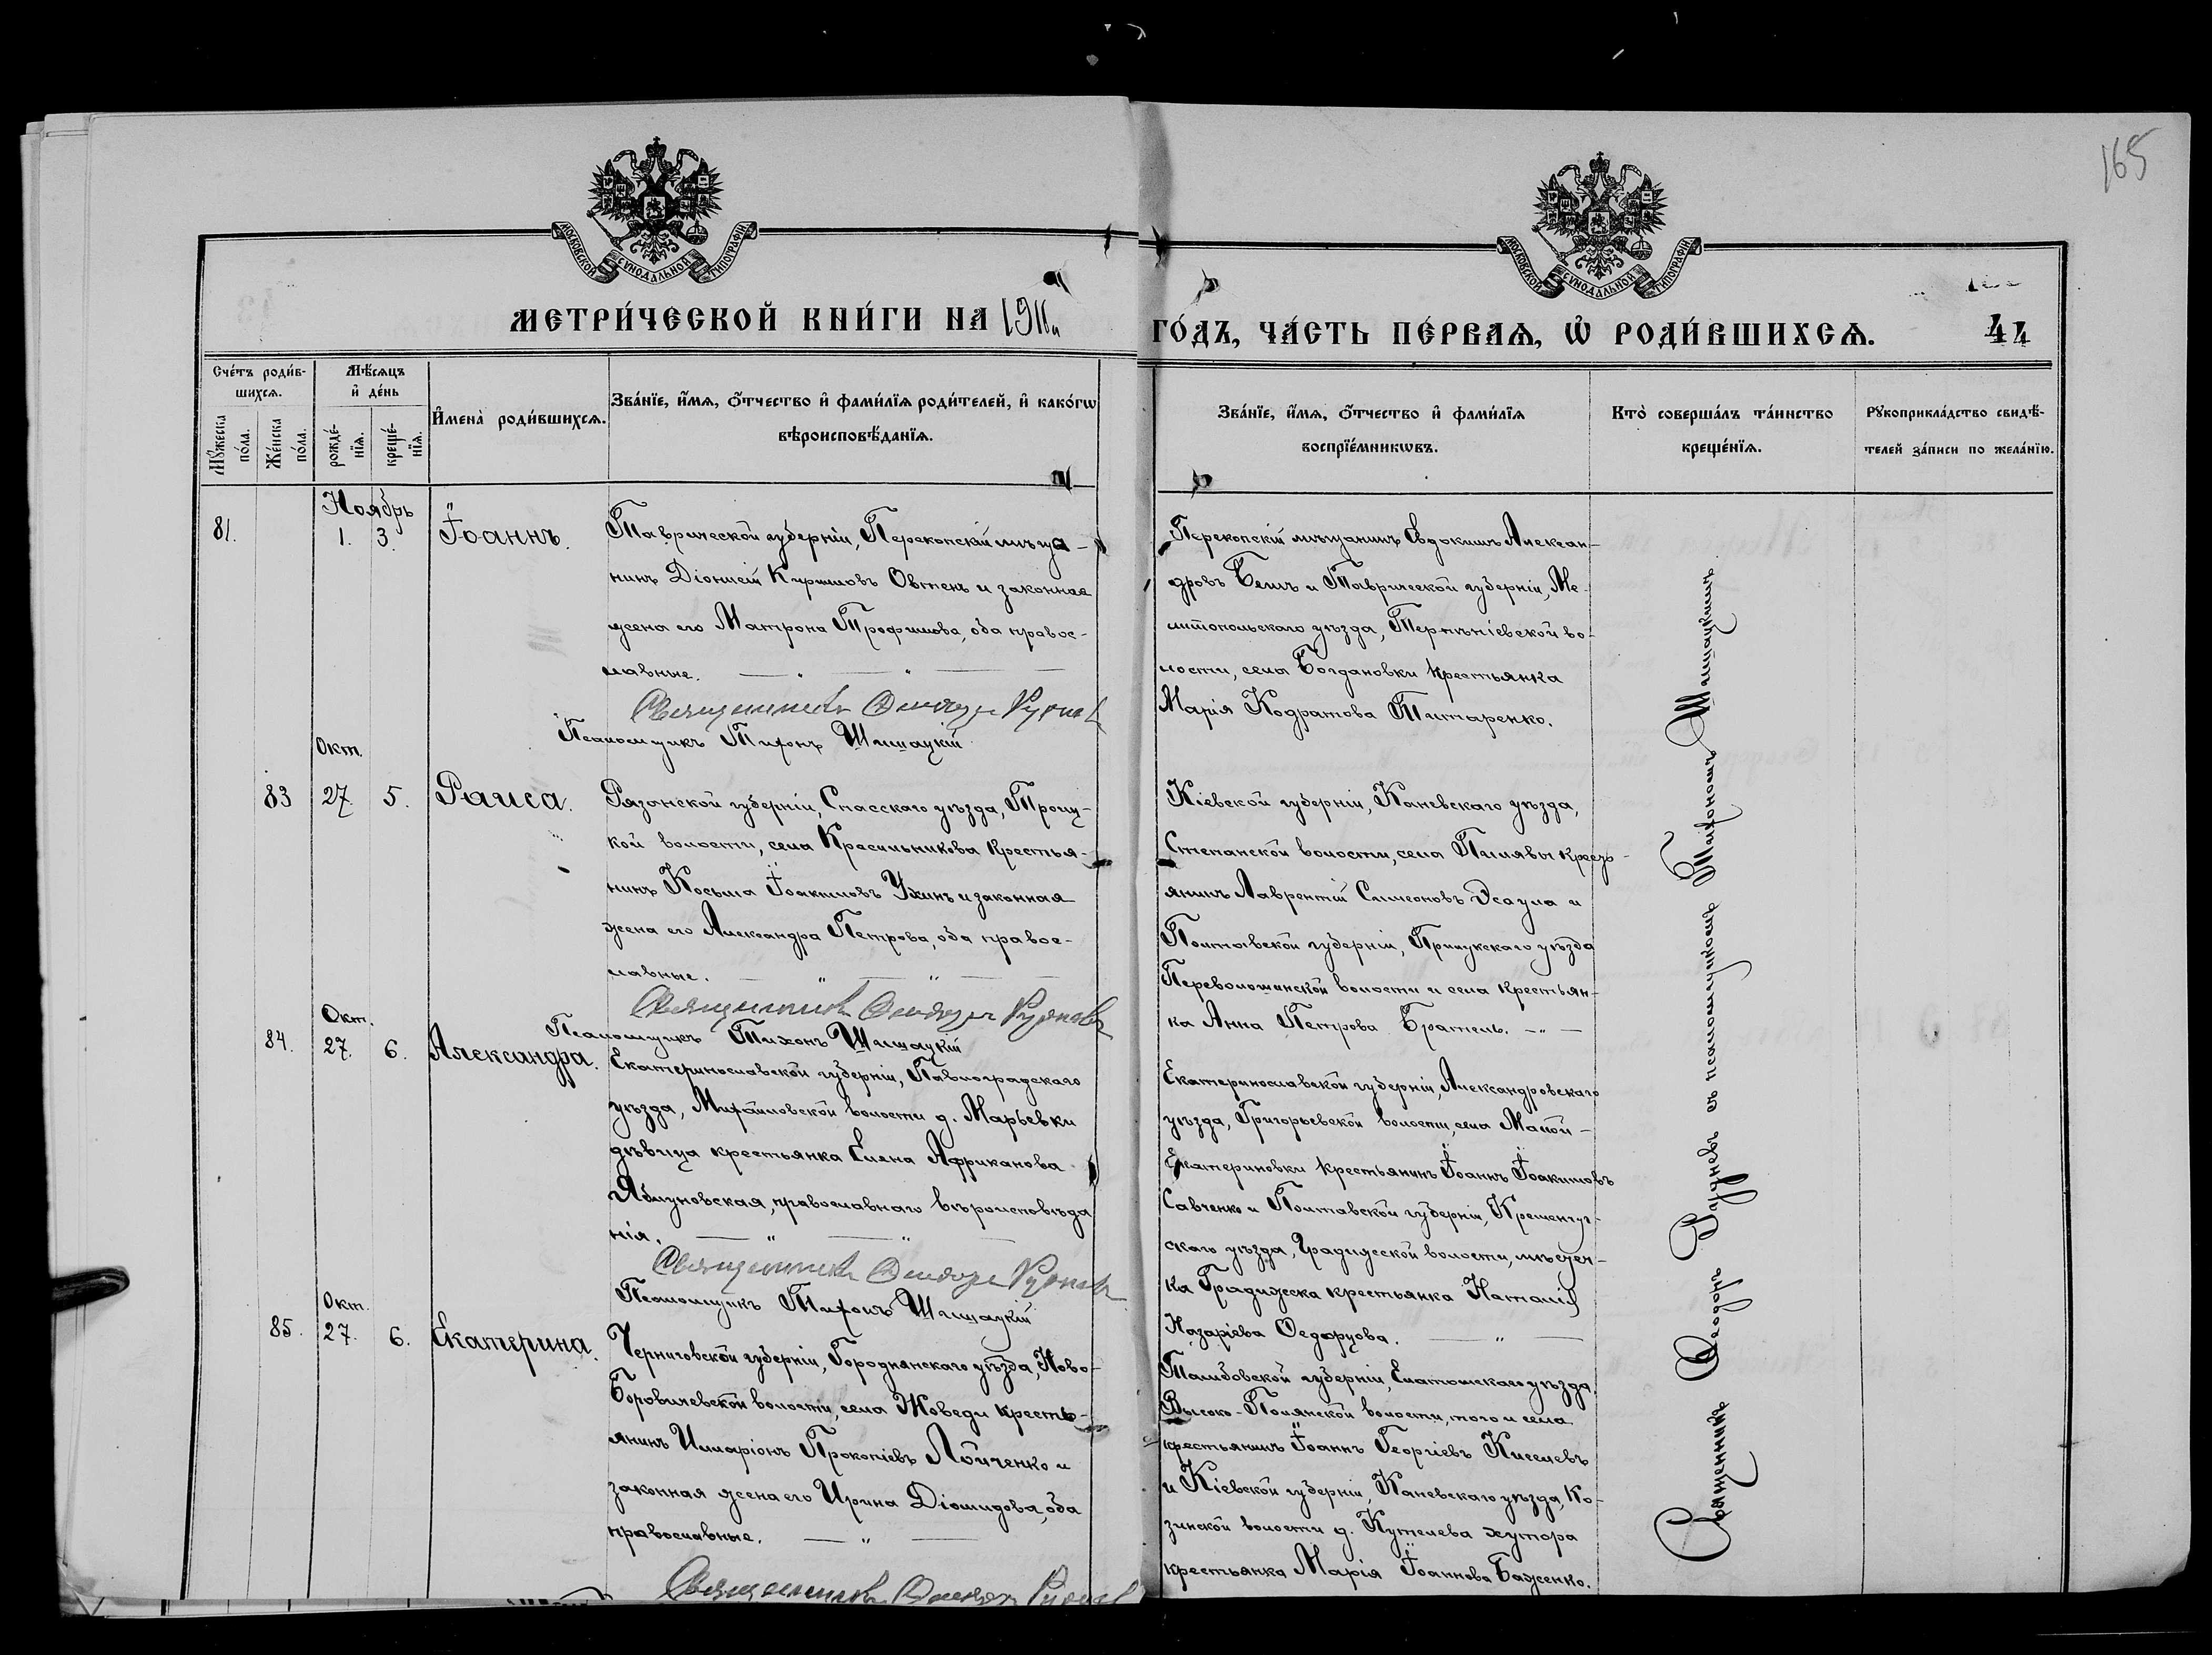 165
МОСКОВСКОЙ СѴНОДАЛЬНОЙ ТИПОГРАФІИ
МОСКОВСКОЙ СѴНОДАЛЬНОЙ ТИПОГРАФІИ
МЕТРИ́ЧЕСКОЙ КНИ́ГИ НА 1911
ГО́ДЪ, ЧА́СТЬ ПЕ́РВАѦ, Ѡ҆ РОДИ́ВШИХСѦ. 44
Сче́тъ роди́в-
шихсѧ.
Мꙋ́жеска по́ла.
Же́нска по́ла.
Мѣ́сѧцъ
и҆ де́нь
рожде́-
нїѧ.
креще́-
нїѧ.
И҆мена̀ роди́вшихсѧ.
Зва́нїе, и҆́мѧ, о҆́тчество и҆ фами́лїѧ роди́телей, и҆ како́гѡ
вѣроисповѣ́данїѧ.
Зва́нїе, и҆́мѧ, о҆́тчество и҆ фами́лїѧ
воспрїе́мникѡвъ.
Кто̀ соверша́лъ та́инство
креще́нїѧ.
Рꙋкоприкла́дство свидѣ́-
телей за́писи по жела́нїю.
Ноябрь
81. 1. 3. Іоаннъ.
Таврической губерніи, Перекопскій мѣща-
нинъ Діонисій Кириловъ Овтенъ и законная
жена его Матрона Трофимова, оба правос-
лавные.
Священникъ Ѳеодоръ Рудневъ
Псаломщикъ Тихонъ Шишацкій
Перекопскій мѣщанинъ Евдокимъ Алексан-
дровъ Бешъ и Таврической губерніи, Ме-
литопольскаго уѣзда, Терпѣніевской во-
лости, села Богдановки крестьянка
Марія Кодратова Титаренко.
Окт.
83 27. 5. Раиса.
Рязанской губерніи, Спасскаго уѣзда, Троиц-
кой волости, села Красильникова крестья-
нинъ Косьма Іоакимовъ Ухинъ и законная
жена его Александра Петрова, оба правос-
лавные.
Священникъ Ѳеодоръ Рудневъ
Псаломщикъ Тихонъ Шишацкій
Кіевской губерніи, Каневскаго уѣзда,
Степанской волости, села Пилявы кресть-
янинъ Лаврентій Симеоновъ Эсаула и
Полтавской губерніи, Прилукскаго уѣзда
Переволошинской волости и села крестьян-
ка Анна Петрова Братель.
Окт.
84. 27. 6. Александра.
Екатеринославской губерніи, Павлоградскаго
уѣзда, Михайловской волости д. Марьевки
дѣвица крестьянка Елена Африканова
Яблуновская, православнаго вѣроисповѣда
нія.
Священникъ Ѳеодоръ Рудневъ
Псаломщикъ Тихонъ Шишацкій
Екатеринославской губерніи, Александровскаго
уѣзда, Григорьевской волости, села Малой-
Екатериновки крестьянинъ Іоаннъ Іоакимовъ
Савченко и Полтавской губерніи, Кременчуг-
скаго уѣзда, Градижской волости, мѣстеч-
ка Градижска крестьянка Наталія
Назаріева
Окт.
85. 27. 6. Екатерина.
Черниговской губерніи, Городнянскаго уѣзда, Ново-
Боровичевской волости, села Жоведи кресть-
янинъ Иларіонъ Прокопіевъ Лойченко и
законная жена его Ирина Діомидова, оба
православные.
Священникъ Ѳеодоръ Рудневъ
Тамбовской губерніи, Елатомскаго уѣзда,
Высоко-Полянской волости, того и села
крестьянинъ Іоаннъ Георгіевъ Киселевъ
и Кіевской губерніи, Каневскаго уѣзда, Ко-
зинской волости д. Кутелева хутора
крестьянка Марія Іоаннова Баженко.
Священникъ Ѳеодоръ Рудневъ съ псаломщикомъ Тихономъ Шишацкимъ